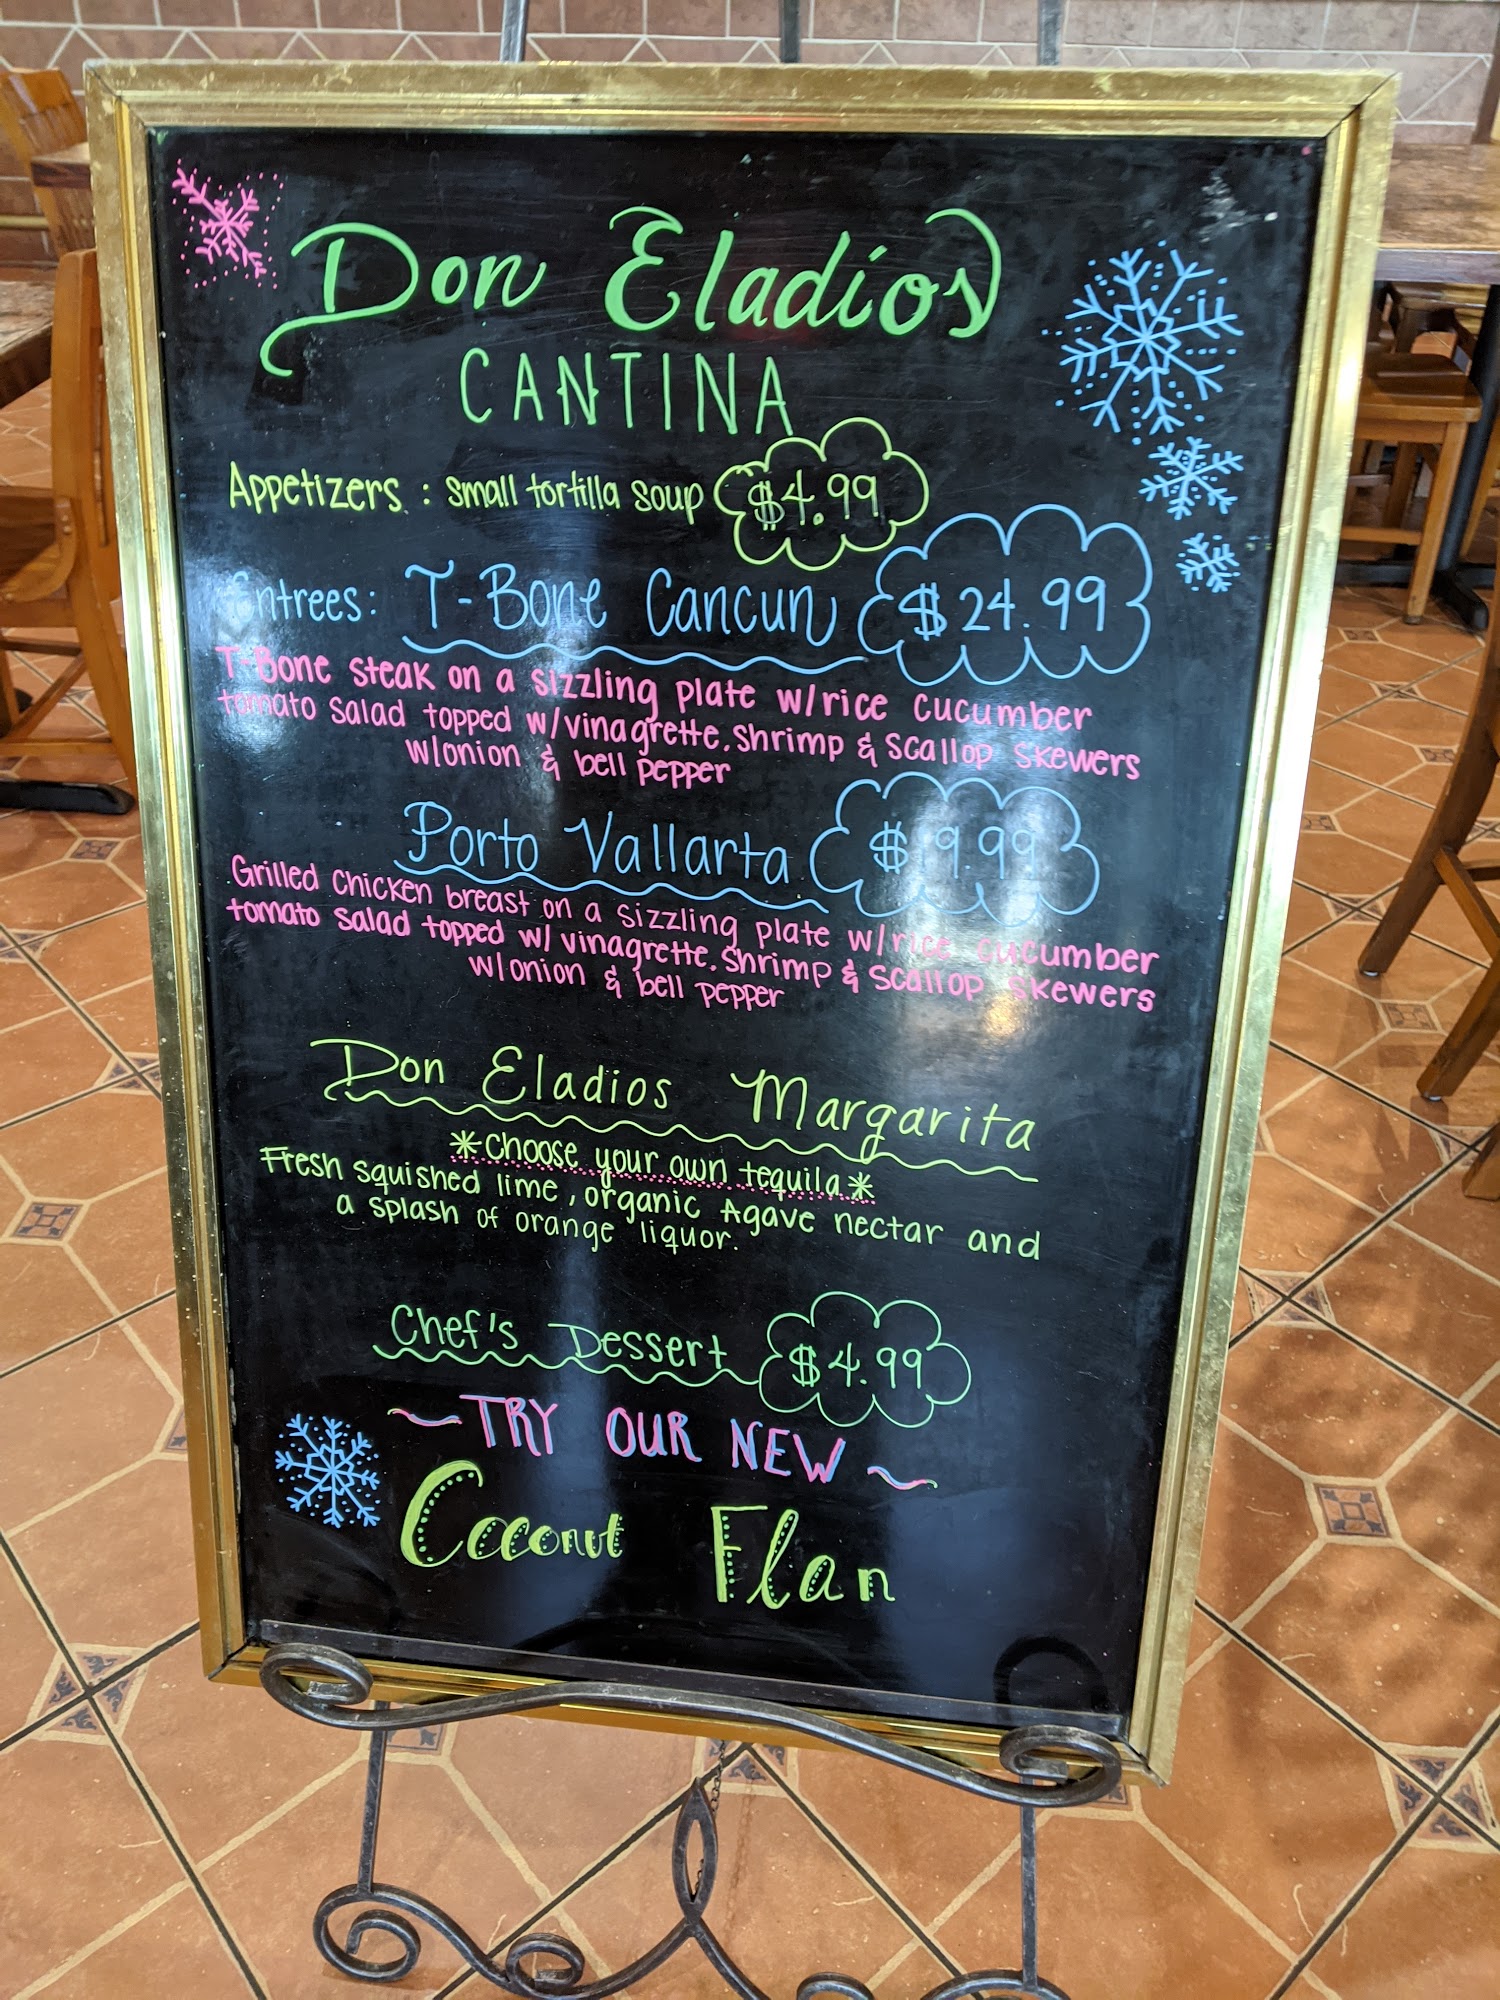 Don Eladios
CANTINA
Appetizers : Small tortilla soup $4.99
Entrees: T-Bone Cancun $24.99
T-Bone steak on a sizzling plate w/rice cucumber
tomato salad topped w/vinagrette. Shrimp & scallop skewers
w/onion & bell pepper
Porto Vallarta $
Grilled chicken breast on a sizzling plate w/rice cucumber
tomato salad topped w/ vinagrette. Shrimp & scallop skewers
w/onion & bell pepper
Don Eladios Margarita
*choose your own tequila*
Fresh squished lime, organic Agave nectar and
a splash of orange liquor.
Chef's Dessert $4.99
~TRY OUR NEW~
Coconut Flan